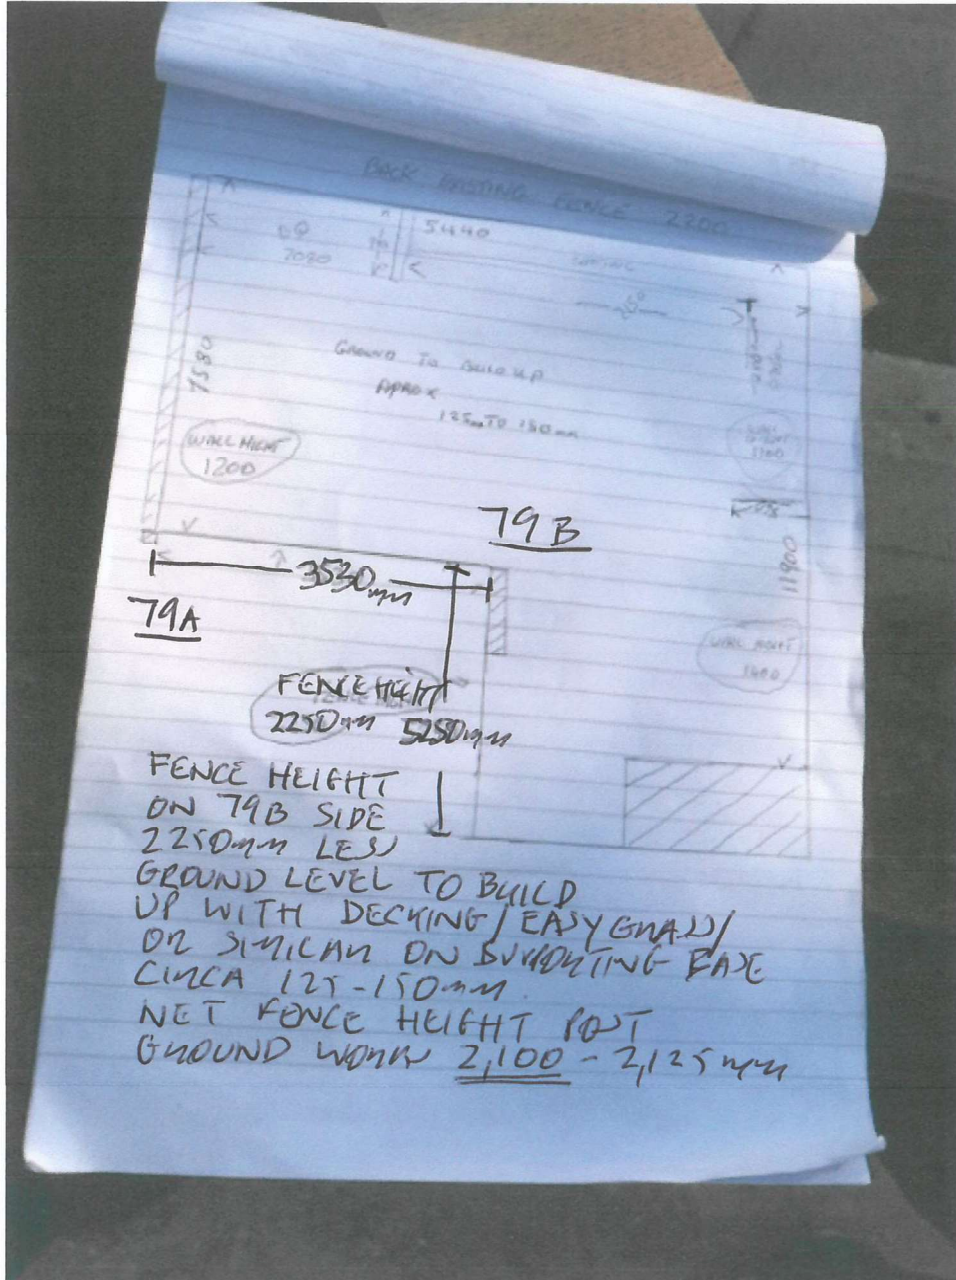 BACK EXISTING FENCE 2200
5440
7580
GROUND TO BUILD UP
APROX
125mm TO 150mm
WALL HIGHT
1200
WALL
1100
79B
3530mm
11900
79A
WALL HIGHT
1400
FENCE HEIGHT
2250mm 5250mm
FENCE HEIGHT
ON 79B SIDE
2250mm LESS
GROUND LEVEL TO BUILD
UP WITH DECKING/EASYGRASS/
OR SIMILAR ON SUPPORTING BASE
CIRCA 125-150mm.
NET FENCE HEIGHT POST
GROUND WORKS 2,100 - 2,125mm